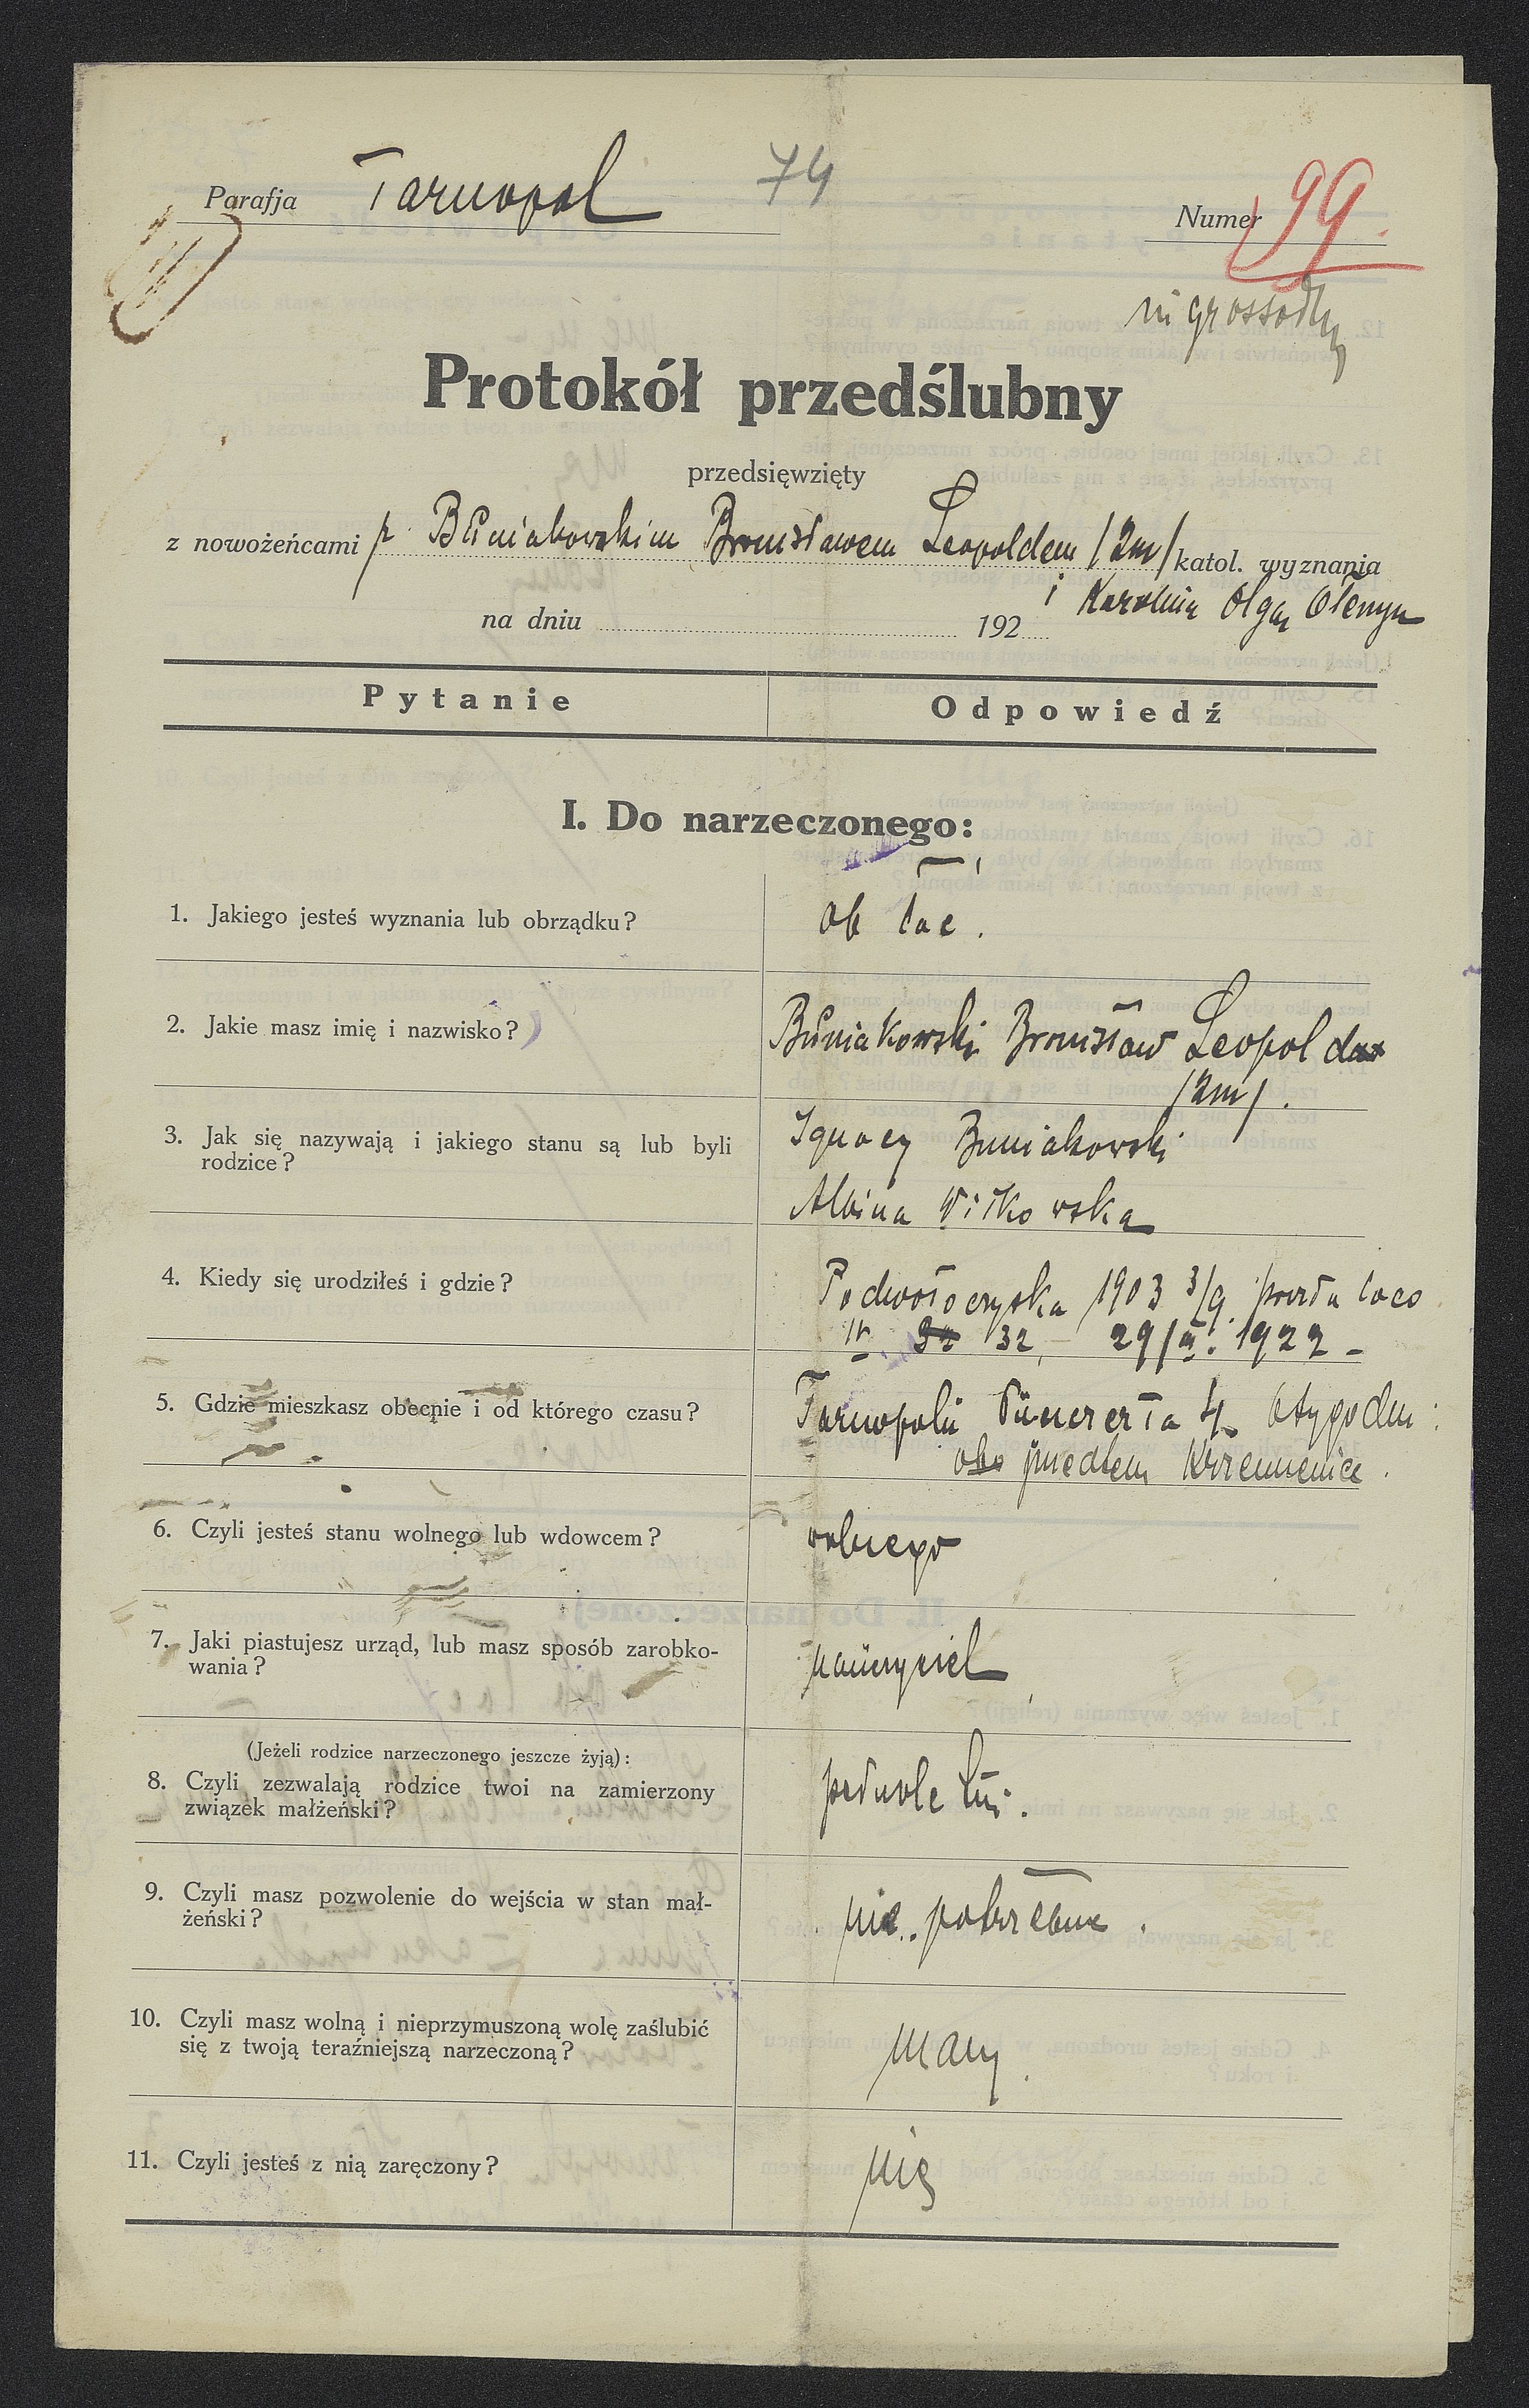 Parafja Tarnopol 74
Numer 99
Protokół przedślubny
przedsięwzięty
z nowożeńcami p. Buniakowskim Bronisławem Leopoldem /2im/ katol. wyznania
i Karolina Olga
na dniu 192
Pytanie Odpowiedź
I. Do narzeczonego:
1. Jakiego jesteś wyznania lub obrządku? ob łac.
2. Jakie masz imię i nazwisko? Buniakowski Bronisław Leopold
/2im/.
3. Jak się nazywają i jakiego stanu są lub byli
rodzice?
Ignacy Buniakowski
Albina Witkowska
4. Kiedy się urodziłeś i gdzie?
Podwołoczyska 1903 3/9
32 29/ 1922
5. Gdzie mieszkasz obecnie i od którego czasu?
Tarnopolu 4
Krzemieniec
6. Czyli jesteś stanu wolnego lub wdowcem? wolnego
7. Jaki piastujesz urząd, lub masz sposób zarobko-
wania?
nauczyciel
(Jeżeli rodzice narzeczonego jeszcze żyją):
8. Czyli zezwalają rodzice twoi na zamierzony
związek małżeński?
pełnoletni.
9. Czyli masz pozwolenie do wejścia w stan mał-
żeński?
nie potrzebne.
10. Czyli masz wolną i nieprzymuszoną wolę zaślubić
się z twoją teraźniejszą narzeczoną?
mam
11. Czyli jesteś z nią zaręczony? nie